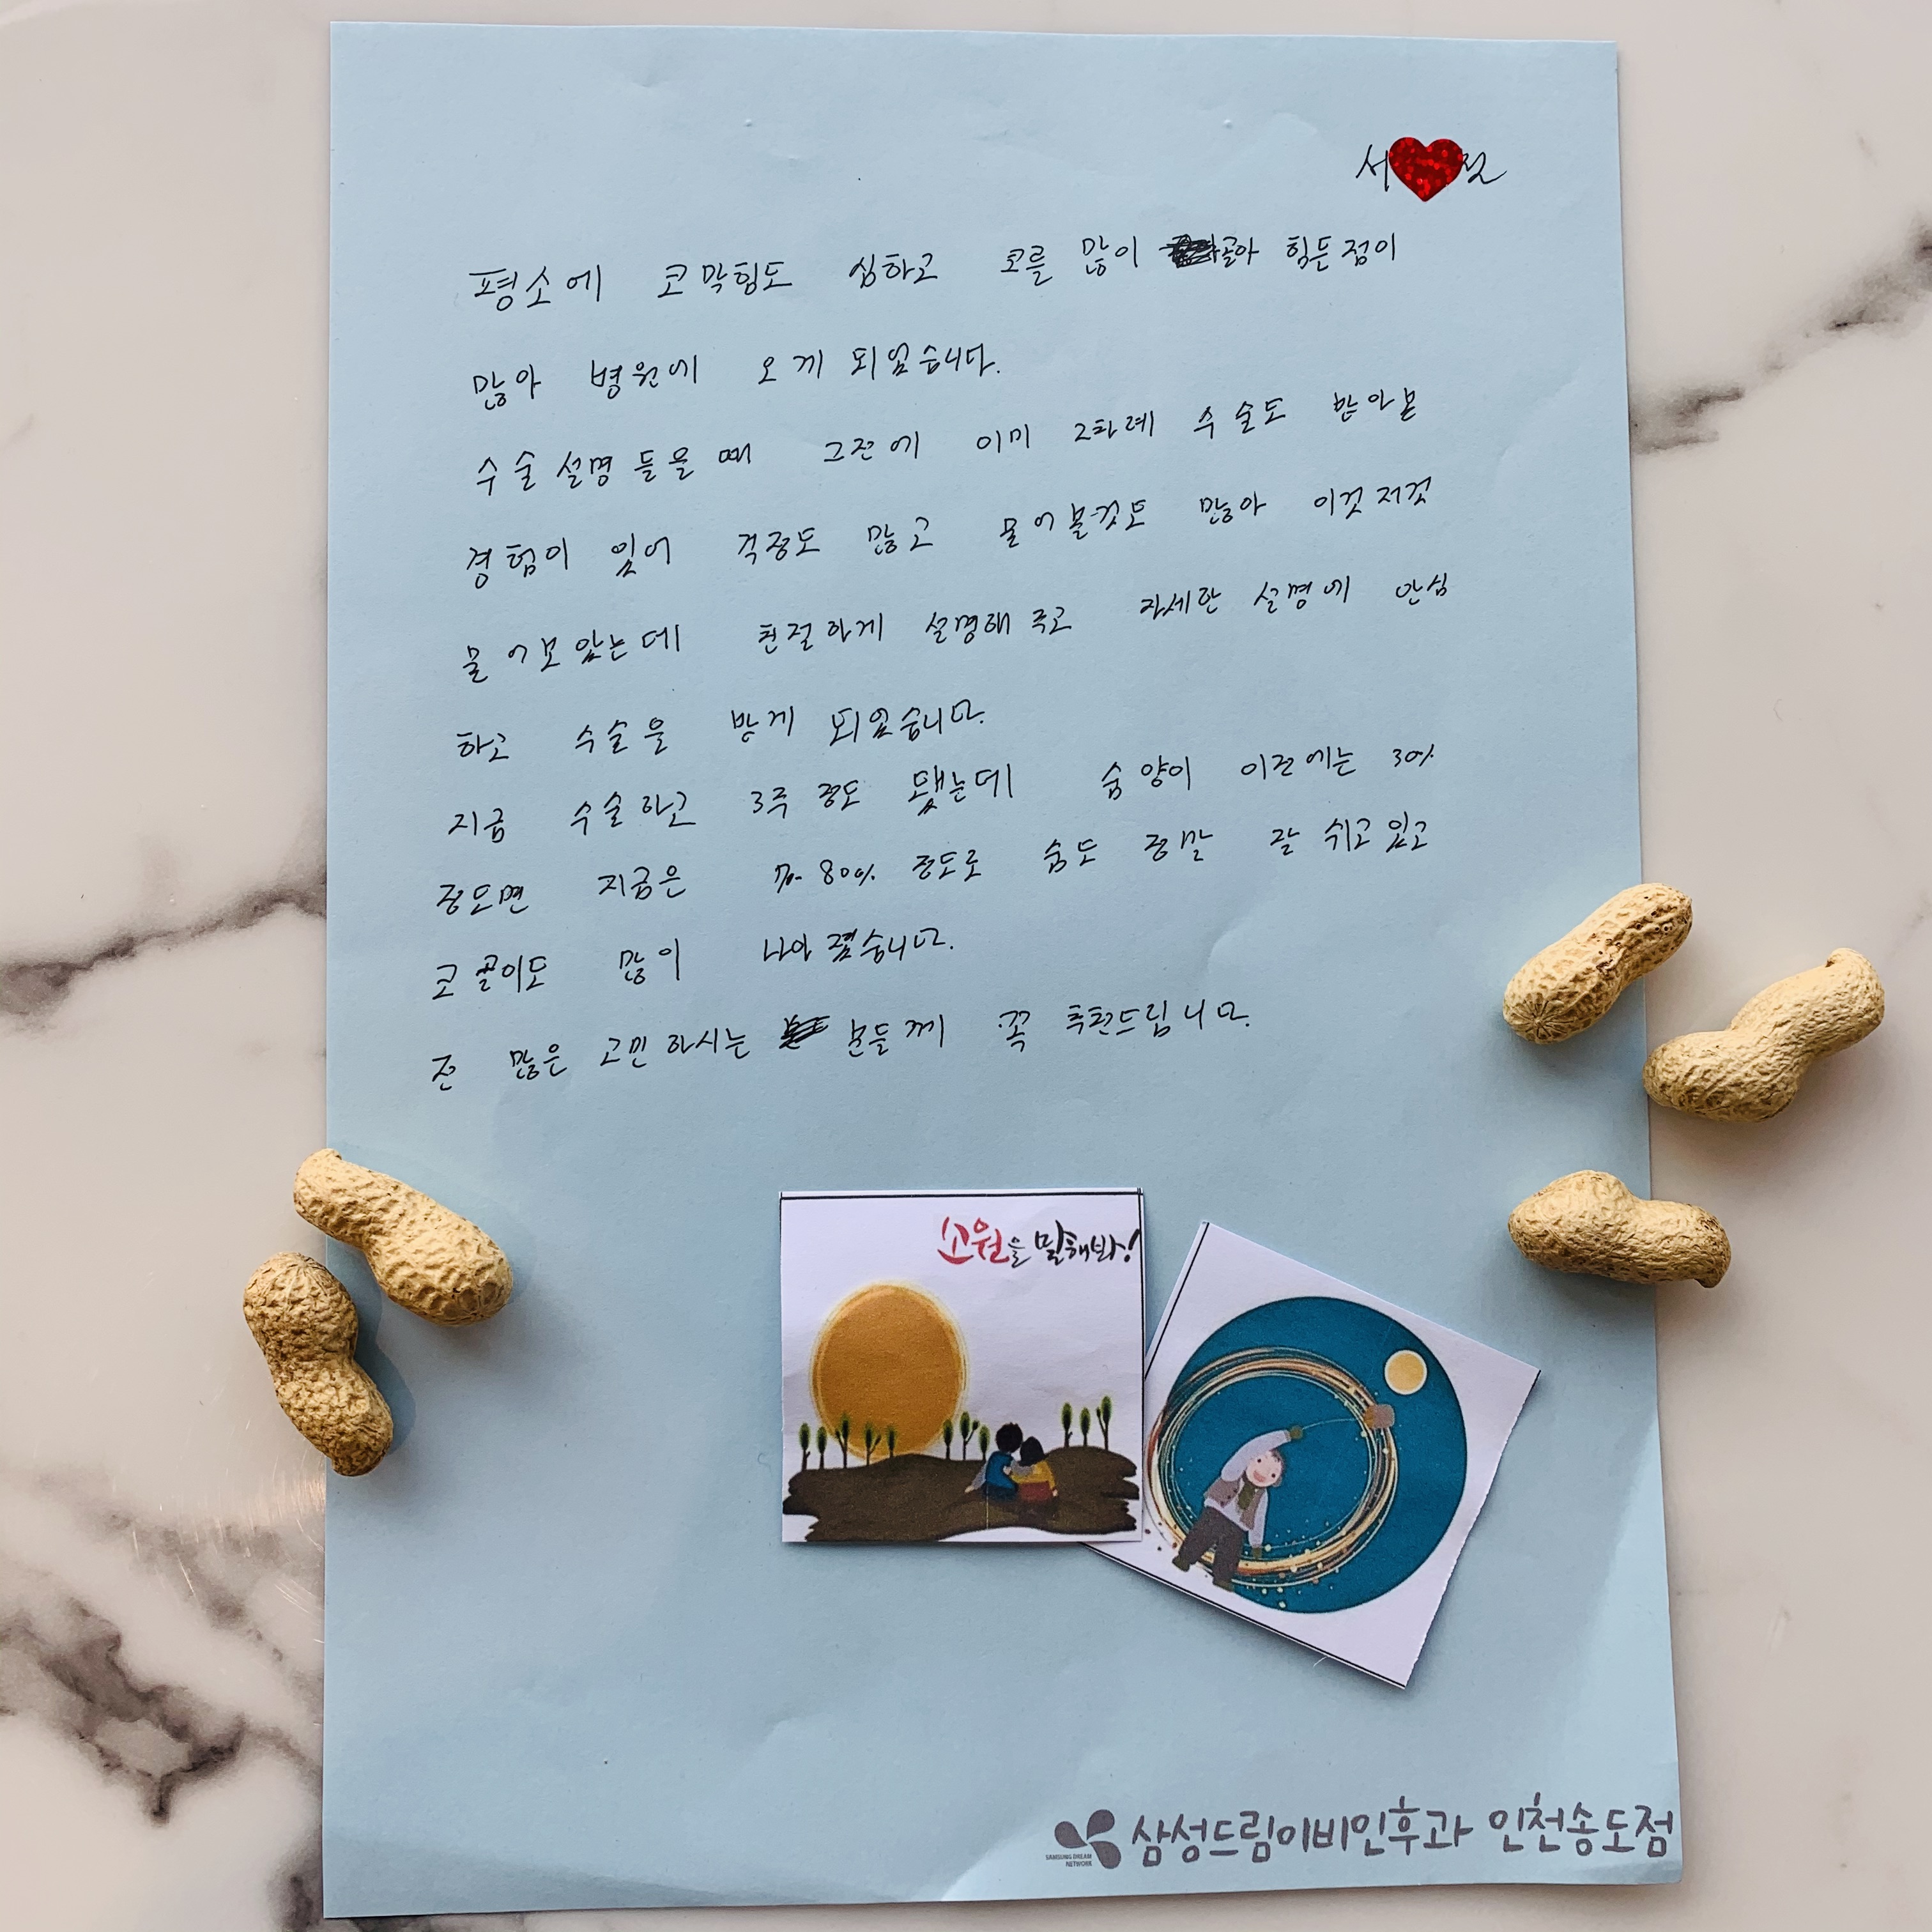 서 진
평소에 코막힘도 심하고 코를 많이 골아 힘든점이
많아 병원에 오게 되었습니다.
수술설명 들을때 그전에 이미 2차례 수술도 받아본
경험이 있어 걱정도 많고 물어볼것도 많아 이것저것
물어보았는데 친절하게 설명해 주고 자세한 설명에 안심
하고 수술을 받게 되었습니다.
지금 수술하고 3주 정도 됐는데 숨양이 이전에는 30%
정도면 지금은 70-80% 정도로 숨도 정말 잘 쉬고있고
코골이도 많이 나아졌습니다.
전 많은 고민하시는 분들께 꼭 추천드립니다.
소원을 말해봐!
삼성드림이비인후과 인천송도점
SAMSUNG DREAM
NETWORK